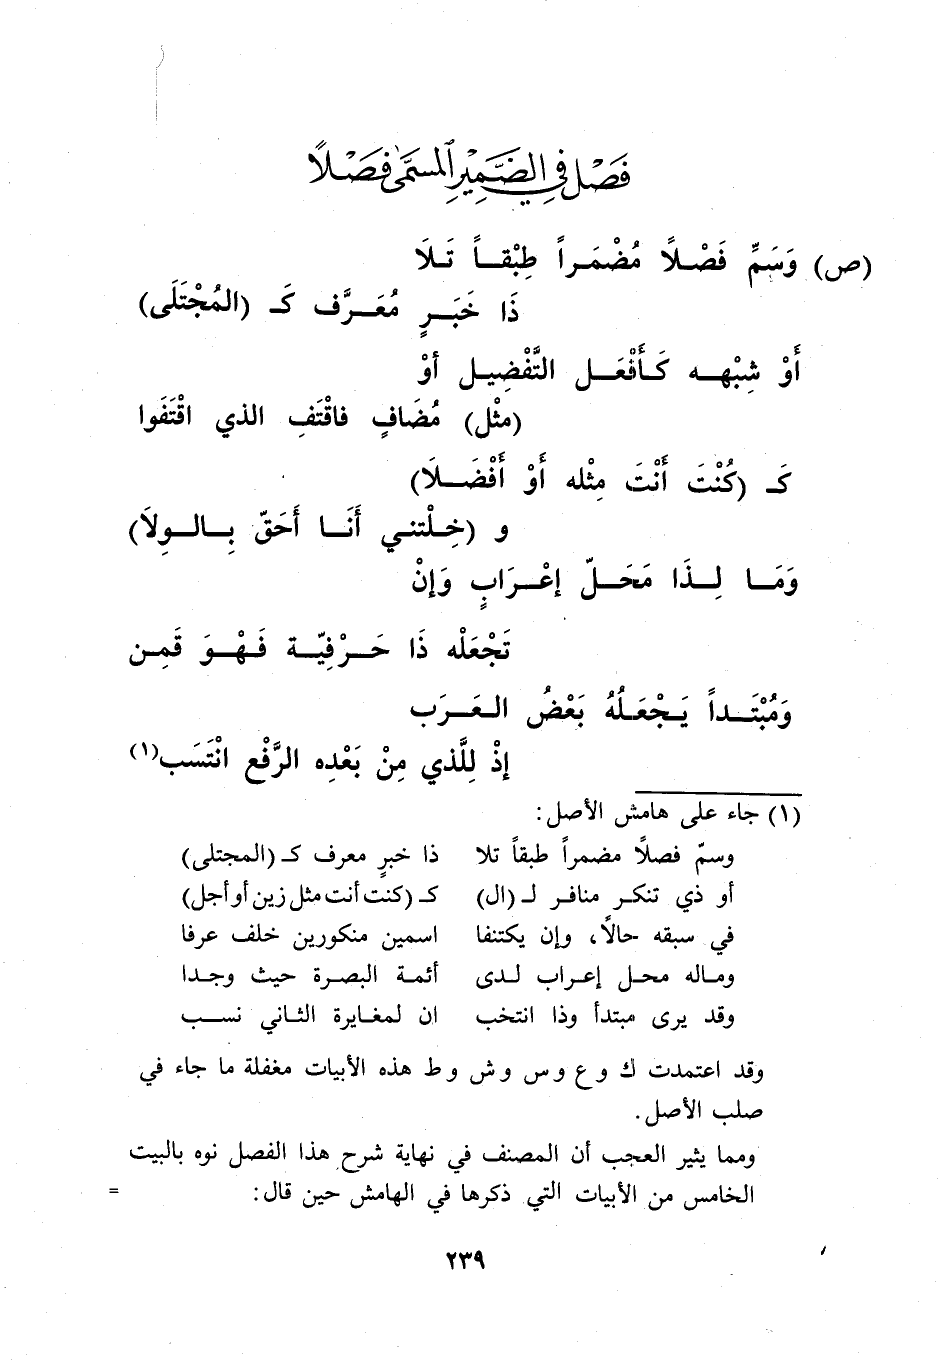 فَصْل فِي الضَّمِيرِ المسَمَّى فَصْلاً
(ص) وَسَمِّ فَصْلاً مُضْمَراً طِبْقاً تَلَا
ذَا خَبَرٍ مُعَرَّف كَـ (المُجْتَلَى)
أَوْ شِبْهه كَأَفْعَل التَّفْضِيل أوْ
(مثْل) مُضَافٍ فاقْتَفِ الذي اقْتَفَوا
كَـ (كُنْتَ أَنْتَ مِثْله أَوْ أَفْضَلَا)
و (خِلْتني أَنَا أَحَقّ بِالوِلاَ)
وَمَا لِذَا مَحَلّ إعْرَابٍ وَإنْ
تَجْعَلْه ذَا حَرْفِيّة فَهْوَ قَمِن
وَمُبْتَدأً يَجْعَلُهُ بَعْضُ العَرَب
إذْ لِلَّذي مِنْ بَعْدِه الرَّفْع انْتَسَب(١)
(١) جاء على هامش الأصل:
وسمّ فصلاً مضمراً طبقاً تلا ذا خبرٍ معرف كـ (المجتلى)
أو ذي تنكر منافر لـ (ال) كـ (كنت أنت مثل زين أو أجل)
في سبقه حالاً، وإن يكتنفا اسمين منكورين خلف عرفا
وماله محل إعراب لدى أئمة البصرة حيث وجدا
وقد يرى مبتدأ وذا انتخب ان لمغايرة الثاني نسب
وقد اعتمدت ك و ع و س و ش و ط هذه الأبيات مغفلة ما جاء في
صلب الأصل.
ومما يثير العجب أن المصنف في نهاية شرح هذا الفصل نوه بالبيت
الخامس من الأبيات التي ذكرها في الهامش حين قال: =
٢٣٩